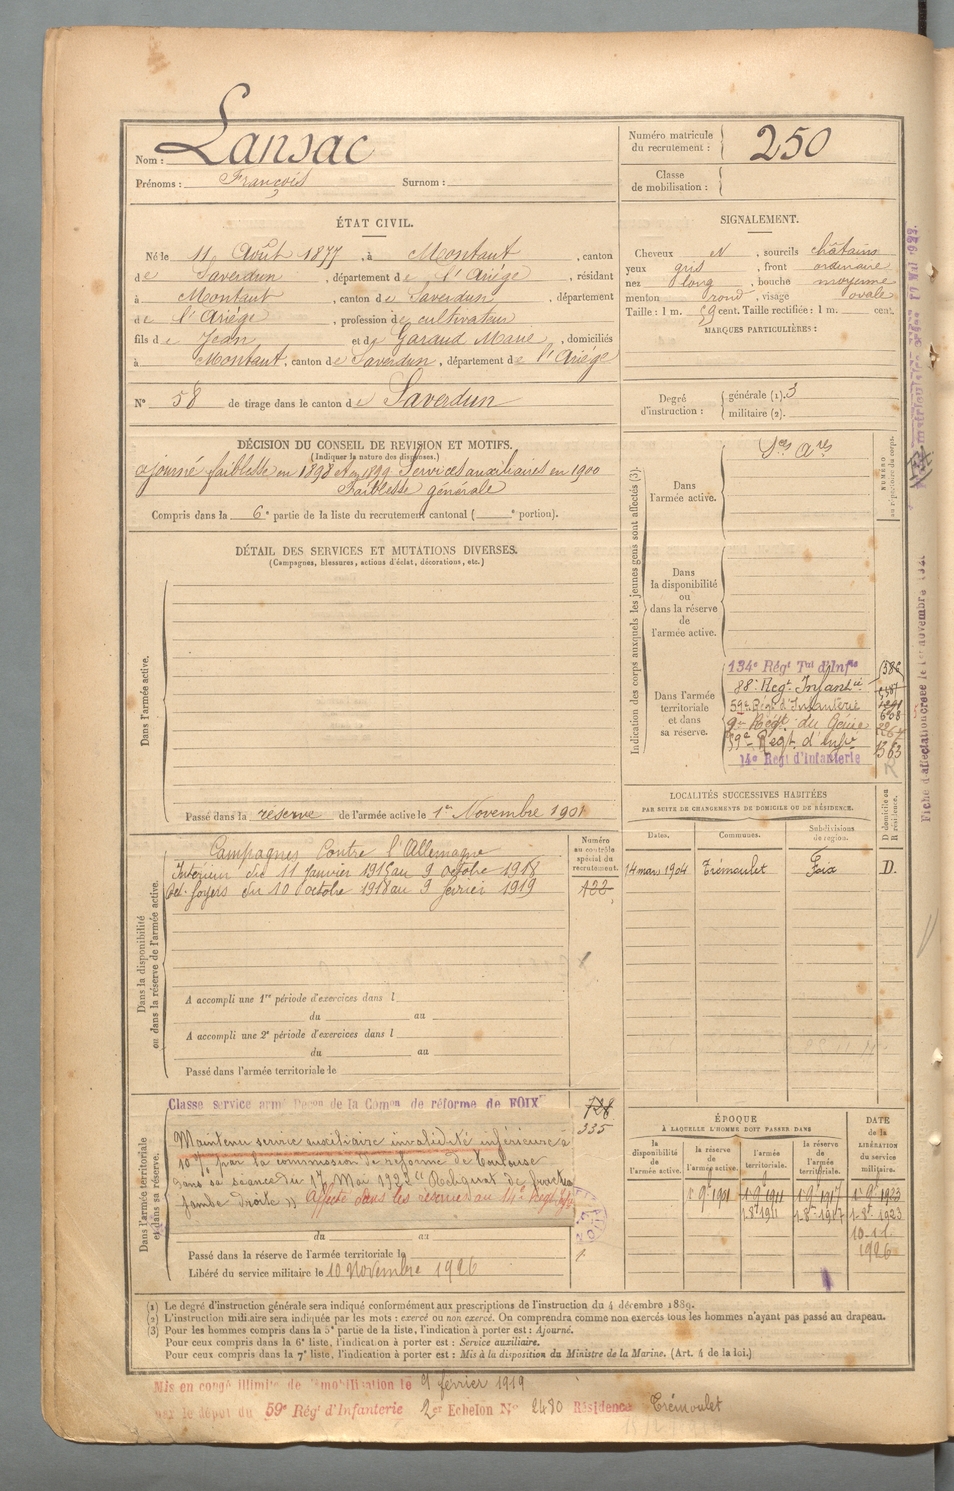 Nom : Lansac
Prénoms : François Surnom :
Numéro matricule du recrutement : 250
Classe de mobilisation :
ÉTAT CIVIL.
Né le 11 Août 1877, à Montaut, canton
de Saverdun, département de l'Ariége, résidant
à Montaut, canton de Saverdun, département
de l'Ariége, profession de cultivateur
fils de Jean et de Garaud Marie, domiciliés
à Montaut, canton de Saverdun, département de l'Ariége
N° 58 de tirage dans le canton de Saverdun
SIGNALEMENT.
Cheveux N, sourcils châtains
yeux gris, front ordinaire
nez long, bouche moyenne
menton rond, visage ovale
Taille : 1 m. 59 cent. Taille rectifiée : 1 m. cent.
MARQUES PARTICULIÈRES :
Degré d'instruction : générale (1). 3
militaire (2).
DÉCISION DU CONSEIL DE REVISION ET MOTIFS.
(Indiquer la nature des dispenses.)
ajourné faiblesse en 1898 et en 1899 Services auxiliaires en 1900
Faiblesse générale
Compris dans la 6e partie de la liste du recrutement cantonal ( e portion).
DÉTAIL DES SERVICES ET MUTATIONS DIVERSES.
(Campagnes, blessures, actions d'éclat, décorations, etc.)
Dans l'armée active.
Passé dans la réserve de l'armée active le 1er Novembre 1901
Indication des corps auxquels les jeunes gens sont affectés (3).
NUMÉRO au répertoire du corps.
Dans l'armée active.
Sces Ares
Dans la disponibilité ou dans la réserve de l'armée active.
Dans l'armée territoriale et dans sa réserve.
134e Régt Tal d'Infie
88e Regt Infantie
59e Régt d'Infanterie
9e Régt du Génie
59e Regt d'Infie
14e Regt d'Infanterie
LOCALITÉS SUCCESSIVES HABITÉES
PAR SUITE DE CHANGEMENTS DE DOMICILE OU DE RÉSIDENCE.
Dates. Communes. Subdivisions de région. D domicile ou R résidence.
14 mars 1904 Trémoulet Foix D.
Dans la disponibilité ou dans la réserve de l'armée active.
Numéro au contrôle spécial du recrutement.
422
Campagnes Contre l'Allemagne
Intérieur du 11 janvier 1915 au 9 octobre 1918
Det. foyers du 10 octobre 1918 au 9 février 1919
A accompli une 1re période d'exercices dans l
du au
A accompli une 2e période d'exercices dans l
du au
Passé dans l'armée territoriale le
Dans l'armée territoriale et dans sa réserve.
Classe service armé de la Comon de réforme de FOIX
728
335
Maintenu service auxiliaire invalidité inférieure à
10% par la commission de réforme de Toulouse
dans sa séance du 17 Mai 1922 "Reliquat de fracture
jambe droite" Affecté dans les réserves au 14e Regt
du au
Passé dans la réserve de l'armée territoriale le
Libéré du service militaire le 10 Novembre 1926
ÉPOQUE
À LAQUELLE L'HOMME DOIT PASSER DANS
la disponibilité de l'armée active. la réserve de l'armée active. l'armée territoriale. la réserve de l'armée territoriale.
DATE de la LIBÉRATION du service militaire.
1-9-1901 1-9-1911 1-9-1917 1-9-1923
1-8t-1911 1-8t-1917 1-8t-1923
10-11-
1926
(1) Le degré d'instruction générale sera indiqué conformément aux prescriptions de l'instruction du 4 décembre 1889.
(2) L'instruction militaire sera indiquée par les mots : exercé ou non exercé. On comprendra comme non exercés tous les hommes n'ayant pas passé au drapeau.
(3) Pour les hommes compris dans la 5e partie de la liste, l'indication à porter est : Ajourné.
Pour ceux compris dans la 6e liste, l'indication à porter est : Service auxiliaire.
Pour ceux compris dans la 7e liste, l'indication à porter est : Mis à la disposition du Ministre de la Marine. (Art. 4 de la loi.)
Mis en congé illimité de démobilisation le 9 février 1919
par le dépôt du 59e Rég' d'Infanterie 2er Echelon N° 2480 Résidence Trémoulet